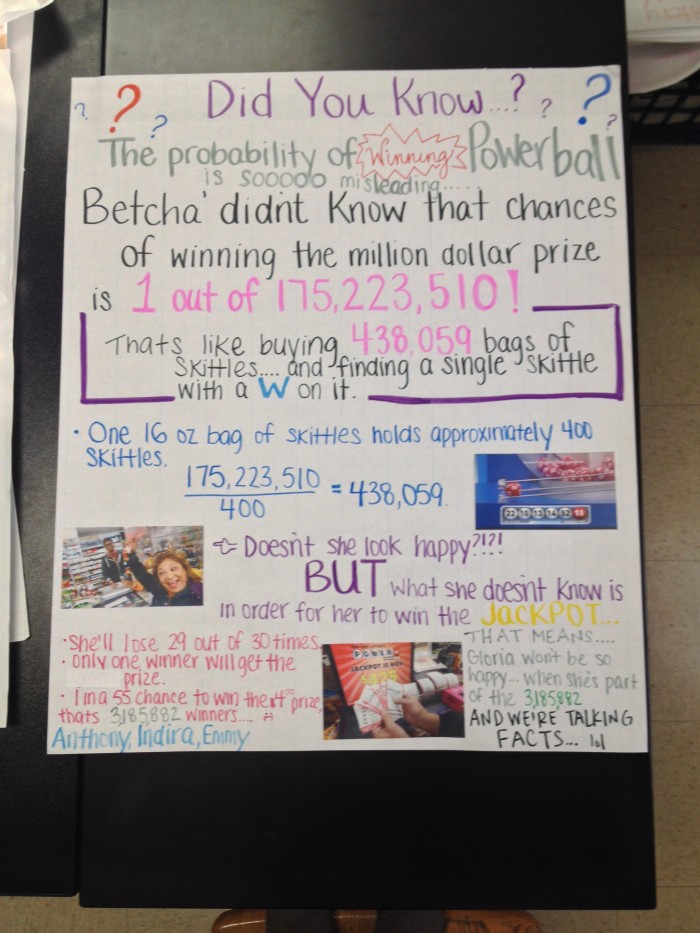 ? ? ? Did You Know...? ? ? ?
The probability of Winning Powerball
is sooooo misleading.....
Betcha' didn't Know that chances
of winning the million dollar prize
is 1 out of 175,223,510!
Thats like buying 438,059 bags of
SKittles.... and finding a single SKittle
with a W on it.
• One 16 oz bag of SKittles holds approximately 400
SKittles.
175,223,510
400
= 438,059
22 10 13 14 52
Doesn't she look happy?!?!
BUT what she doesn't know is
in order for her to win the JACKPOT...
• She'll lose 29 out of 30 times.
• Only one winner will get the
prize.
• 1 in a 55 chance to win the $4 prize,
thats 3,185,882 winners....
Anthony, Indira, Emmy
POWER
JACKPOT IS NOW
THAT MEANS....
Gloria won't be so
happy... when she's part
of the 3,185,882
AND WE'RE TALKING
FACTS... lol